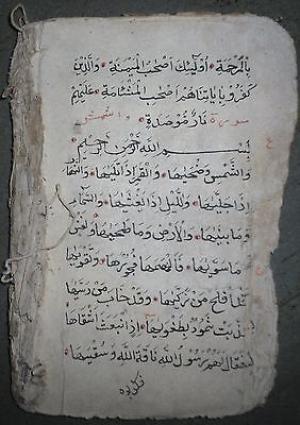 بالمرحمة اولئك اصحب الميمنة والذين
كفروا باياتنا هم اصحب المشئمة عليهم
نار موصدة سورة والشمس
بسم الله الرحمن الرحيم
والشمس وضحيها والقمر اذا تليها والنهار
اذا جليها والليل اذا يغشيها والسماء
وما بنيها والارض وما طحيها ونفس
وما سويها فالهمها فجورها وتقويها
قد افلح من زكيها وقد خاب من دسيها
كذبت ثمود بطغويها اذ انبعث اشقاها
فقال لهم رسول الله ناقة الله وسقيها
فكذبوه